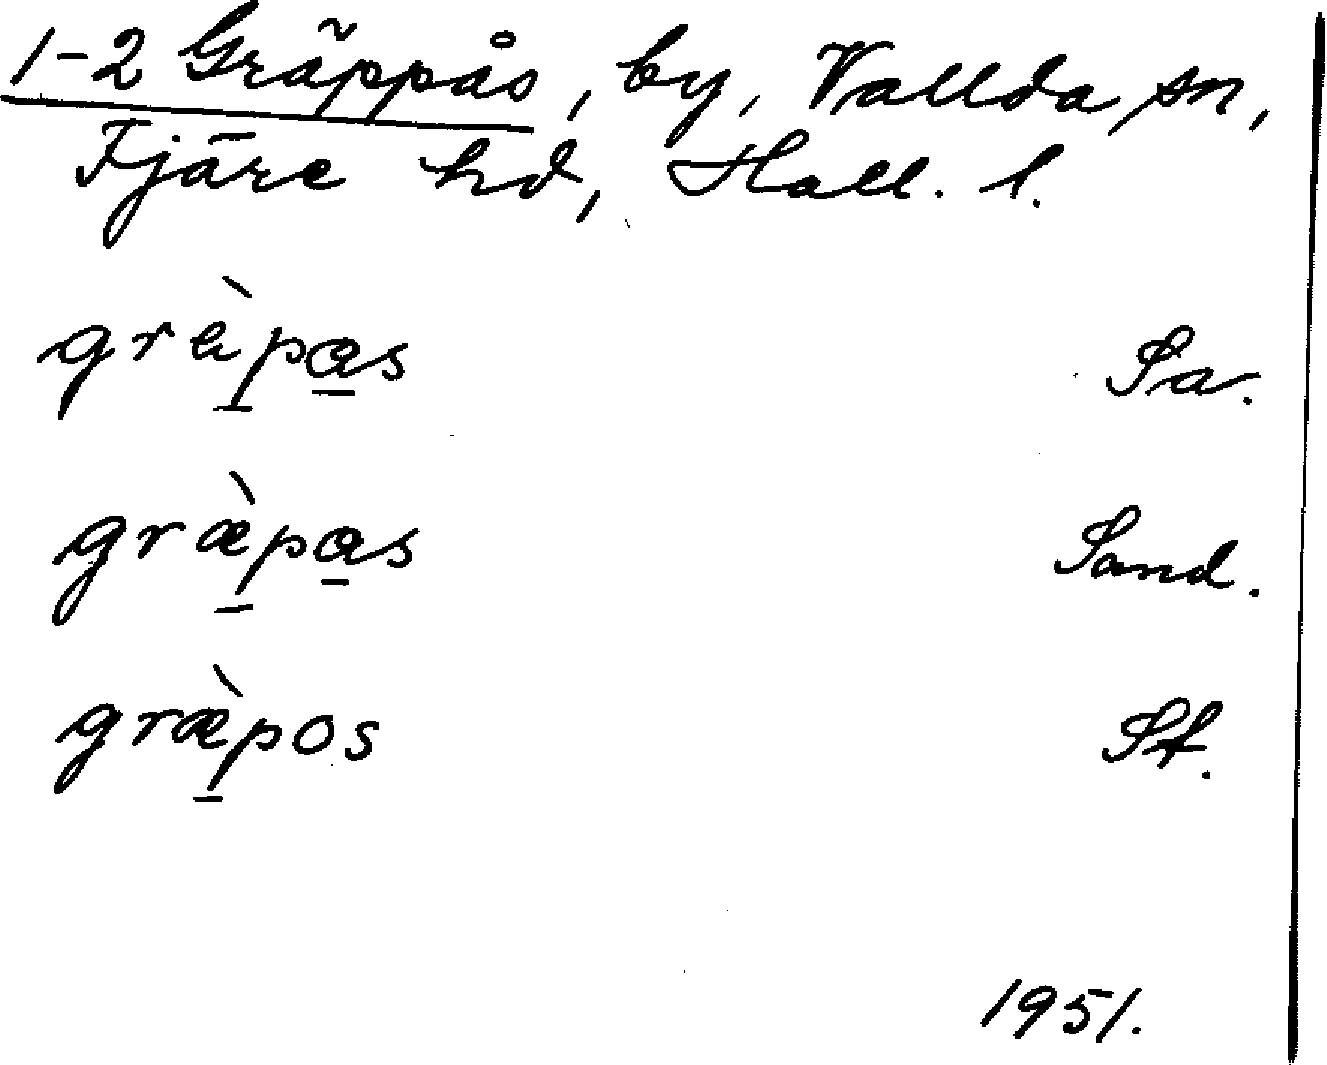 1-2 Gräppås, by, Vallda sn,
Fjäre hd, Hall. l.
græ̀p̲a̲s Sa.
græ̀p̲a̲s Sand.
græ̀p̲os St.
1951.